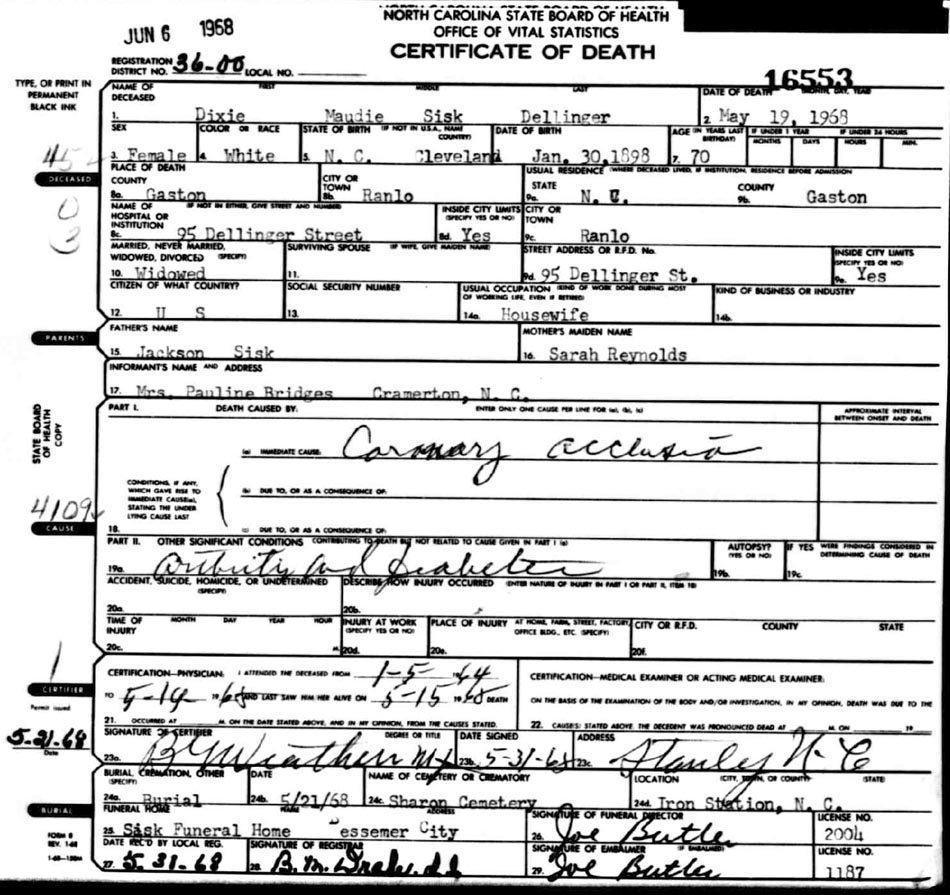 NORTH CAROLINA STATE BOARD OF HEALTH
OFFICE OF VITAL STATISTICS
CERTIFICATE OF DEATH
JUN 6 1968
REGISTRATION DISTRICT NO. 36-00 LOCAL NO.
16553
TYPE, OR PRINT IN PERMANENT BLACK INK
NAME OF DECEASED FIRST MIDDLE LAST DATE OF DEATH MONTH, DAY, YEAR
1. Dixie Maudie Sisk Dellinger 2. May 19, 1968
SEX COLOR OR RACE STATE OF BIRTH (IF NOT IN U.S.A., NAME COUNTRY) DATE OF BIRTH AGE (IN YEARS LAST BIRTHDAY) IF UNDER 1 YEAR MONTHS DAYS IF UNDER 24 HOURS HOURS MIN.
3. Female 4. White 5. N. C. Cleveland Jan. 30,1898 7. 70
DECEASED
PLACE OF DEATH USUAL RESIDENCE (WHERE DECEASED LIVED, IF INSTITUTION, RESIDENCE BEFORE ADMISSION
COUNTY CITY OR TOWN STATE COUNTY
8a. Gaston 8b. Ranlo 9a. N. C. 9b. Gaston
NAME OF HOSPITAL OR INSTITUTION (IF NOT IN EITHER, GIVE STREET AND NUMBER) INSIDE CITY LIMITS (SPECIFY YES OR NO) CITY OR TOWN
8c. 95 Dellinger Street 8d. Yes 9c. Ranlo
MARRIED, NEVER MARRIED, WIDOWED, DIVORCED (SPECIFY) SURVIVING SPOUSE (IF WIFE, GIVE MAIDEN NAME) STREET ADDRESS OR R.F.D. No. INSIDE CITY LIMITS (SPECIFY YES OR NO)
10. Widowed 11. 9d. 95 Dellinger St. 9e. Yes
CITIZEN OF WHAT COUNTRY? SOCIAL SECURITY NUMBER USUAL OCCUPATION (KIND OF WORK DONE DURING MOST OF WORKING LIFE, EVEN IF RETIRED) KIND OF BUSINESS OR INDUSTRY
12. U S 13. 14a. Housewife 14b.
PARENTS
FATHER'S NAME MOTHER'S MAIDEN NAME
15. Jackson Sisk 16. Sarah Reynolds
INFORMANT'S NAME AND ADDRESS
17. Mrs. Pauline Bridges Cramerton, N. C.
STATE BOARD OF HEALTH COPY
PART I. DEATH CAUSED BY: ENTER ONLY ONE CAUSE PER LINE FOR (a), (b), (c) APPROXIMATE INTERVAL BETWEEN ONSET AND DEATH
(a) IMMEDIATE CAUSE: Coronary occlusion
CONDITIONS, IF ANY, WHICH GAVE RISE TO IMMEDIATE CAUSE(a), STATING THE UNDER LYING CAUSE LAST
(b) DUE TO, OR AS A CONSEQUENCE OF:
4109
CAUSE
18. (c) DUE TO, OR AS A CONSEQUENCE OF:
PART II. OTHER SIGNIFICANT CONDITIONS CONTRIBUTING TO DEATH BUT NOT RELATED TO CAUSE GIVEN IN PART I (a) AUTOPSY? (YES OR NO) IF YES WERE FINDINGS CONSIDERED IN DETERMINING CAUSE OF DEATH
19a. and Diabetes 19b. 19c.
ACCIDENT, SUICIDE, HOMICIDE, OR UNDETERMINED (SPECIFY) DESCRIBE HOW INJURY OCCURRED (ENTER NATURE OF INJURY IN PART I OR PART II, ITEM 18)
20a. 20b.
TIME OF INJURY MONTH DAY YEAR HOUR INJURY AT WORK (SPECIFY YES OR NO) PLACE OF INJURY AT HOME, FARM, STREET, FACTORY, OFFICE BLDG., ETC. (SPECIFY) CITY OR R.F.D. COUNTY STATE
20c. M. 20d. 20e. 20f.
CERTIFICATION—PHYSICIAN: I ATTENDED THE DECEASED FROM 1-5- 1964 CERTIFICATION—MEDICAL EXAMINER OR ACTING MEDICAL EXAMINER:
CERTIFIER
TO 1968 AND LAST SAW HIM HER ALIVE ON 5-15 1968 DEATH ON THE BASIS OF THE EXAMINATION OF THE BODY AND/OR INVESTIGATION, IN MY OPINION, DEATH WAS DUE TO THE
21. OCCURRED AT M. ON THE DATE STATED ABOVE, AND IN MY OPINION, FROM THE CAUSES STATED. 22. CAUSE(S) STATED ABOVE. THE DECEDENT WAS PRONOUNCED DEAD AT M. ON 19
Permit issued
5-21-68
Date
SIGNATURE OF CERTIFIER DEGREE OR TITLE DATE SIGNED ADDRESS
23a. 23b. 5-31-68 23c. Stanley N-C
BURIAL, CREMATION, OTHER (SPECIFY) DATE NAME OF CEMETERY OR CREMATORY LOCATION (CITY, TOWN, OR COUNTY) (STATE)
24a. Burial 24b. 5/21/68 24c. Sharon Cemetery 24d. Iron Station, N. C.
BURIAL
FUNERAL HOME NAME ADDRESS SIGNATURE OF FUNERAL DIRECTOR LICENSE NO.
25. Sisk Funeral Home Bessemer City 26. Joe Butler 2004
FORM 8
REV. 1-68
1-68-100M
DATE REC'D BY LOCAL REG. SIGNATURE OF REGISTRAR SIGNATURE OF EMBALMER (IF EMBALMED) LICENSE NO.
27. 5.31.68 28. 29. Joe Butler 1187